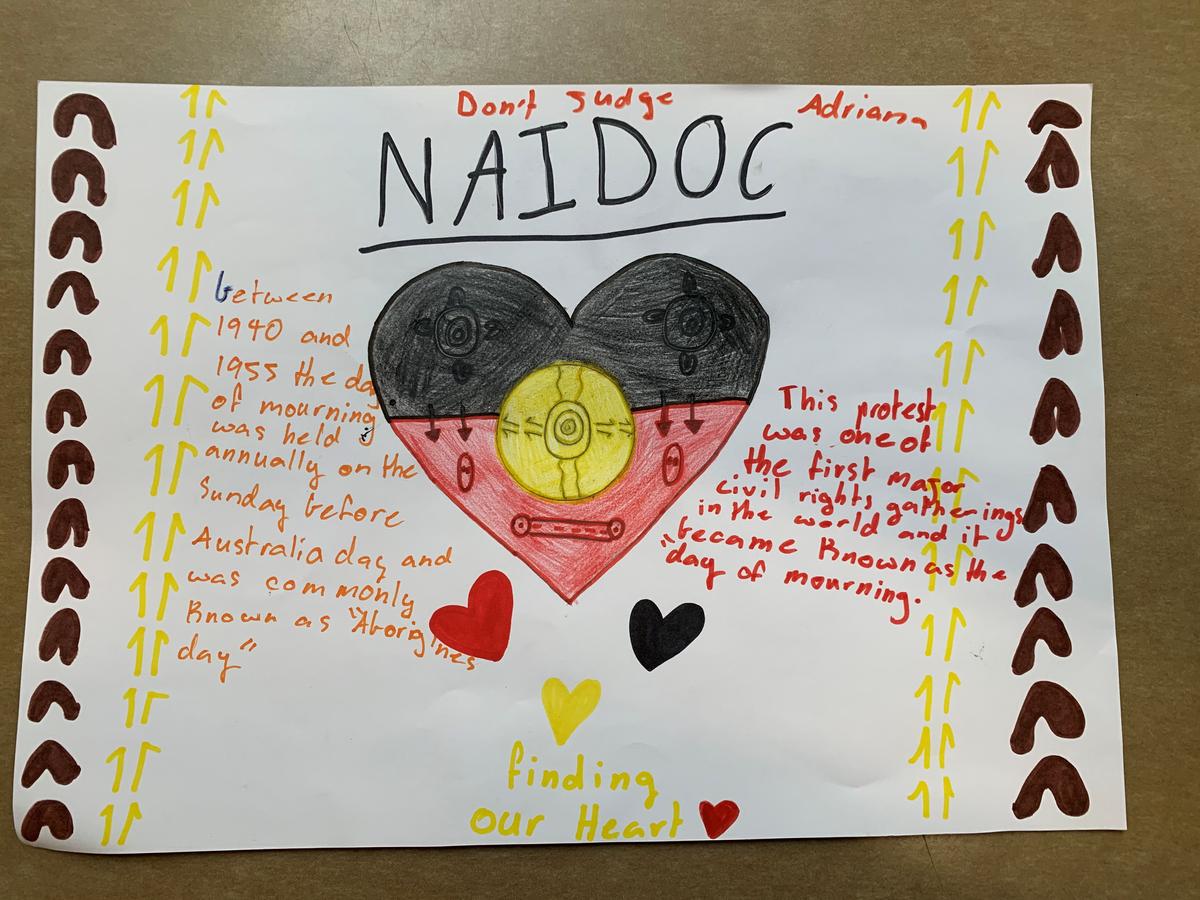 Don't Judge
Adriana
NAIDOC
between
1940 and
1955 the day
of mourning
was held
annually on the
Sunday before
Australia day and
was commonly
Known as "Aborigines
day"
This protest
was one of
the first major
civil rights gatherings
in the world and it
became Known as the
"day of mourning.
finding
our Heart